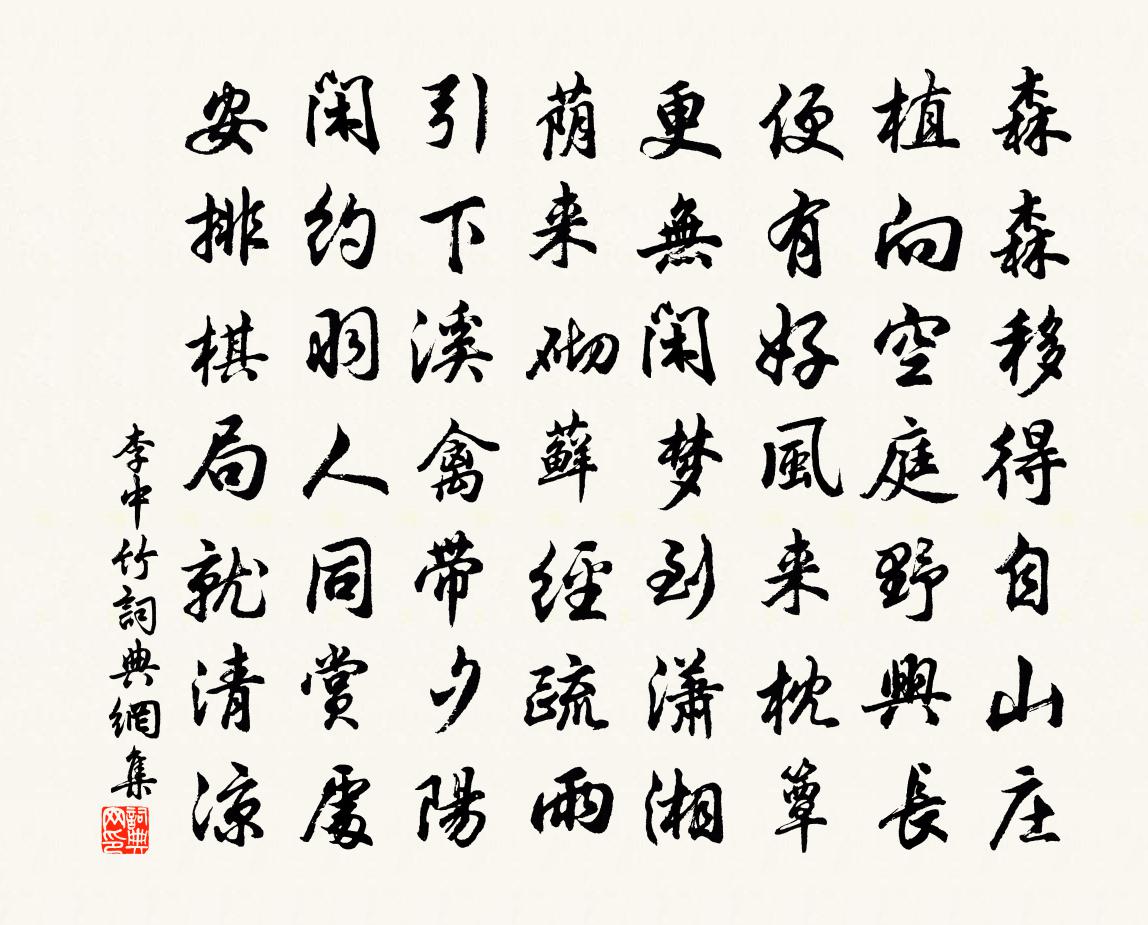 森森移得自山庄
植向空庭野興長
便有好風来枕簟
更無閑梦到瀟湘
荫来砌蘚經疏雨
引下溪禽帶夕陽
閑約羽人同賞處
安排棋局就清凉
李中竹詞典網集
詞典
网印